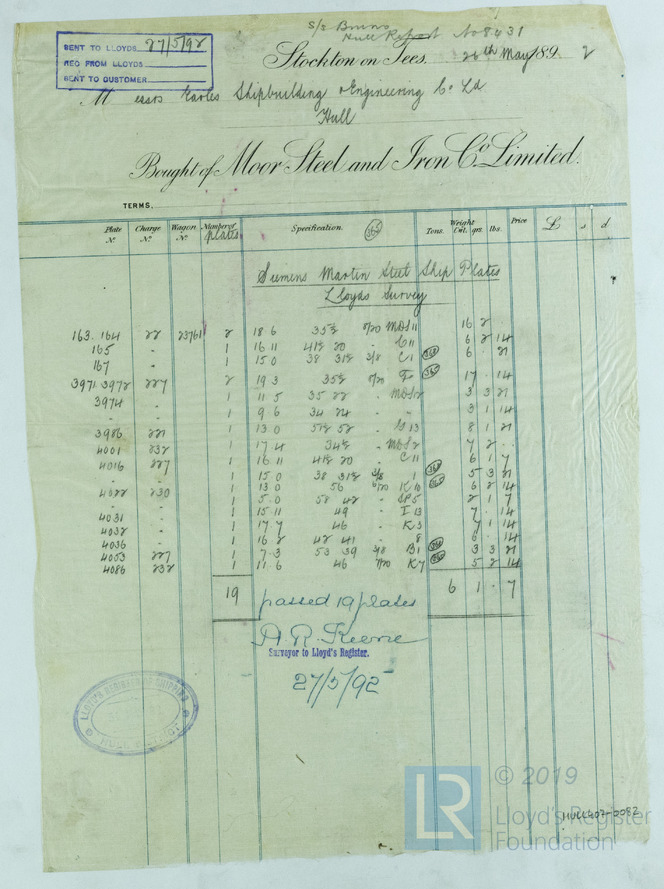 S/S Bruno
Hull Report No 8431
SENT TO LLOYDS 27/5/92
REC FROM LLOYDS
SENT TO CUSTOMER
Stockton on Tees. 26th May 1892
Messrs Earles Shipbuilding & Engineering Co Ld
Hull
Bought of Moor Steel and Iron Co. Limited.
TERMS.
Plate No. Charge No. Wagon No. Number of plates Specification. Tons. Weight Cwt. qrs. lbs. Price £ s d
Siemens Martin Steel Ship Plates
Lloyds Survey
163.164 22 23761 2 18 6 35½ 7/20 MDS11 16 2
165 - 1 16 11 41½ 20 - C11 6 2 14
167 - 1 15 0 38 31½ 3/8 C1 6 - 21
3971.3972 227 2 19 3 35½ 7/20 17 - 14
3974 - 1 11 5 35 22 - MDS2 3 3 21
- - 1 9 6 34 24 - " 3 1 14
3986 221 1 13 0 51½ 52 - G13 8 1 21
4001 232 1 17 4 34½ - MDS2 7 2 -
4016 227 1 16 11 41½ 20 - C11 6 1 7
- - 1 15 0 38 31½ 3/8 1 5 3 21
4022 230 1 13 0 56 7/20 K10 6 2 14
- - 1 5 0 58 42 - SP5 2 1 7
4031 - 1 15 11 49 - I13 7 - 14
4032 - 1 17 7 46 - K3 7 1 14
4036 - 1 16 2 42 41 - 8 6 - 14
4053 227 1 7 3 53 39 3/8 B1 3 3 21
4086 232 1 11 6 46 7/20 K7 5 2 14
19 6 1 - 7
passed 19 plates
A. R. Keene
Surveyor to Lloyd's Register.
27/5/92
LLOYD'S REGISTER OF SHIPPING
LR © 2019
Lloyd's Register
Foundation
HULL407-0082